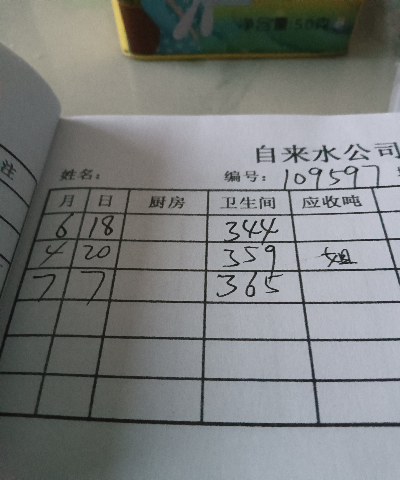 自来水公司
姓名： 编号：109597
月 日 厨房 卫生间 应收吨
6 18 344
4 20 359
7 7 365
注